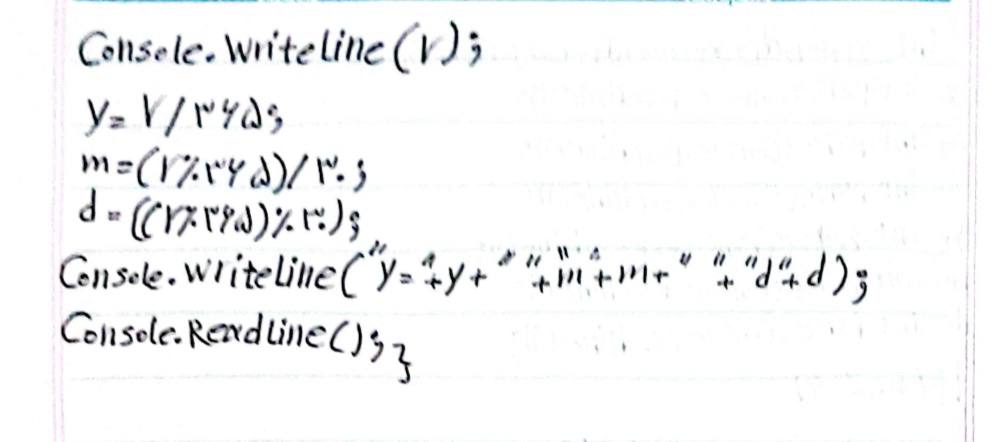 Console.Writeline(r);
y= r/۳۶۵;
m=(r%۳۶۵)/۳۰;
d=((r%۳۶۵)%۳۰);
Console.Writeline("y="+y+" "+"m"+m+" "+"d"+d);
Console.Readline();}